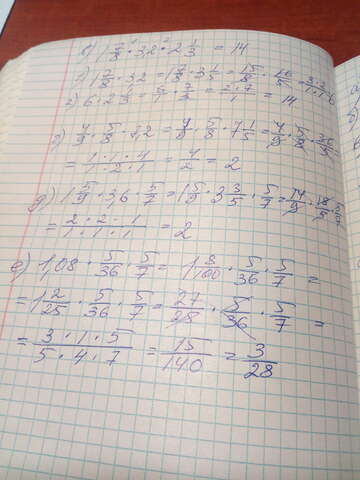 в) 1 7/8 · 3,2 · 2 1/3 = 14
1) 1 7/8 · 3,2 = 1 7/8 · 3 1/5 = 15/8 · 16/5 = 3·2/1·1 = 6
2) 6 · 2 1/3 = 6/1 · 7/3 = 2·7/1 = 14
г) 4/9 · 5/8 · 7,2 = 4/9 · 5/8 · 7 1/5 = 4/9 · 5/8 · 36/5 =
= 1·1·4/1·2·1 = 4/2 = 2
д) 1 5/9 · 3,6 · 5/7 = 1 5/9 · 3 3/5 · 5/7 = 14/9 · 18/5 · 5/7
= 2·2·1/1·1·1 = 2
е) 1,08 · 5/36 · 5/7 = 1 8/100 · 5/36 · 5/7 =
= 1 2/25 · 5/36 · 5/7 = 27/25 · 5/36 · 5/7 =
= 3·1·5/5·4·7 = 15/140 = 3/28